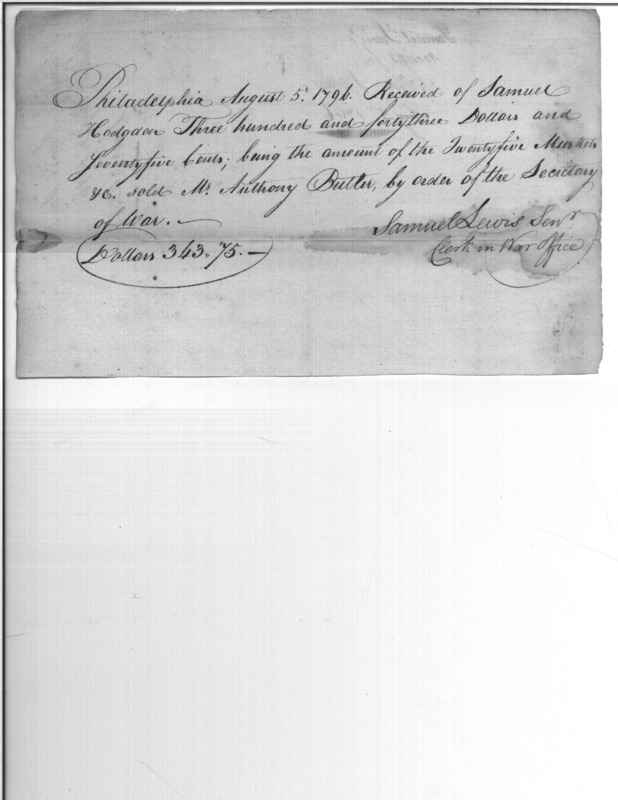 Philadelphia August 5t. 1796. Received of Samuel
Hodgdon Three hundred and fortythree Dollars and
Seventyfive Cents; being the amount of the Twentyfive Muskets
&c. sold Mr. Anthony Butler, by order of the Secretary
of War.—
Samuel Lewis Senr
Clerk in War Office
Dollars 343.75.—